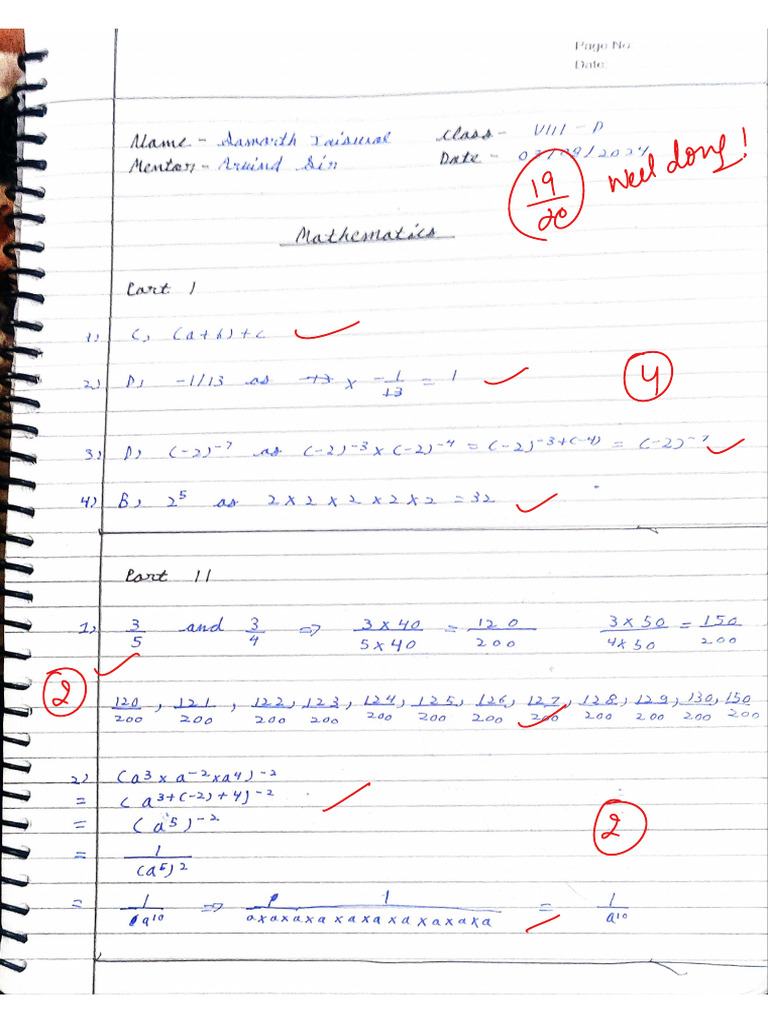 Page No
Date:
Name - Samarth Jaiswal Class - VIII - D
Mentor - Arvind Sir Date - /2024
19/20 Well done!
Mathematics
Part I
1) C, (a+b)+c
2) D, -1/13 as -13 × -1/13 = 1
4
3) D, (-2)^-7 as (-2)^-3 × (-2)^-4 = (-2)^-3+(-4) = (-2)^-7
4) B, 2^5 as 2 × 2 × 2 × 2 × 2 = 32
Part II
1) 3/5 and 3/4 ⇒ 3×40/5×40 = 120/200 3×50/4×50 = 150/200
2
120/200, 121/200, 122/200, 123/200, 124/200, 125/200, 126/200, 127/200, 128/200, 129/200, 130/200, 150/200
2) (a^3 × a^-2 × a^4)^-2
= (a^3+(-2)+4)^-2
= (a^5)^-2
2
= 1/(a^5)^2
= 1/a^10 ⇒ 1/a×a×a×a×a×a×a×a×a×a = 1/a^10